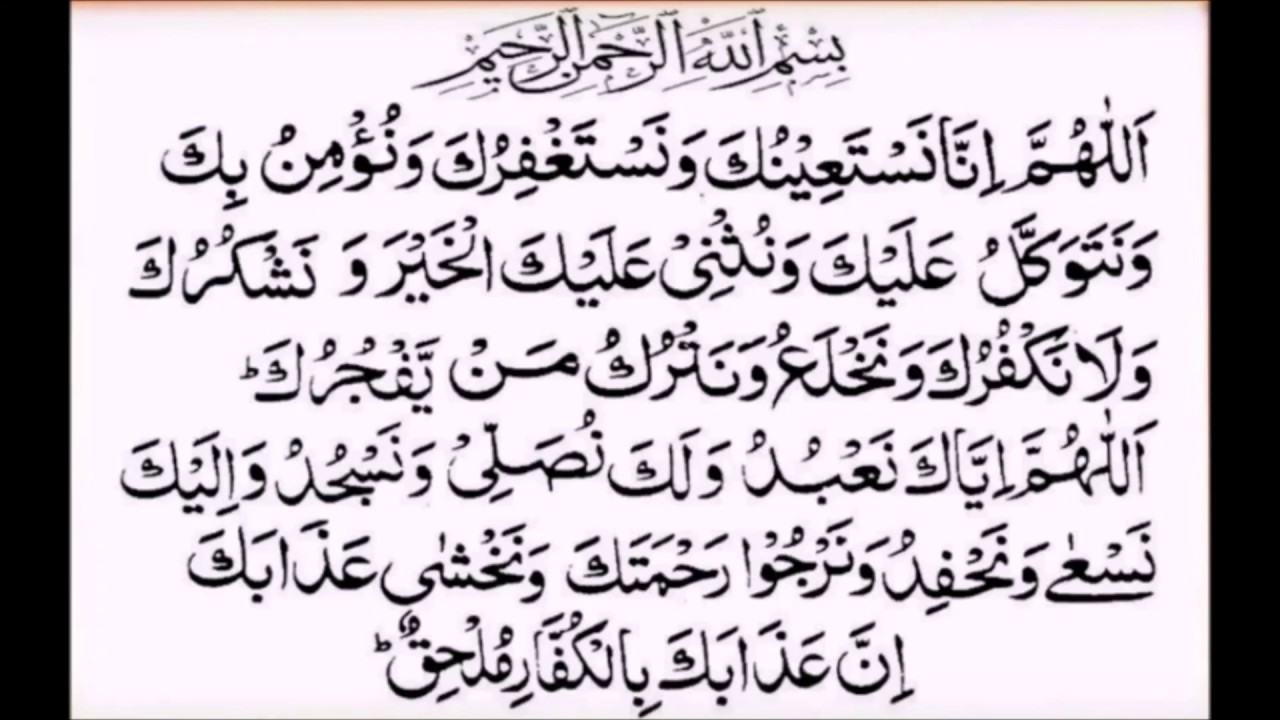 بِسْمِ اللهِ الرَّحْمٰنِ الرَّحِيْمِ
اَللّٰهُمَّ اِنَّا نَسْتَعِيْنُكَ وَنَسْتَغْفِرُكَ وَنُؤْمِنُ بِكَ
وَنَتَوَكَّلُ عَلَيْكَ وَنُثْنِىْ عَلَيْكَ الْخَيْرَ وَ نَشْكُرُكَ
وَلَا نَكْفُرُكَ وَنَخْلَعُ وَنَتْرُكُ مَنْ يَّفْجُرُكَ ؕ
اَللّٰهُمَّ اِيَّاكَ نَعْبُدُ وَلَكَ نُصَلِّىْ وَنَسْجُدُ وَاِلَيْكَ
نَسْعٰى وَنَحْفِدُ وَنَرْجُوْا رَحْمَتَكَ وَنَخْشٰى عَذَابَكَ
اِنَّ عَذَابَكَ بِالْكُفَّارِ مُلْحِقٌ ؕ